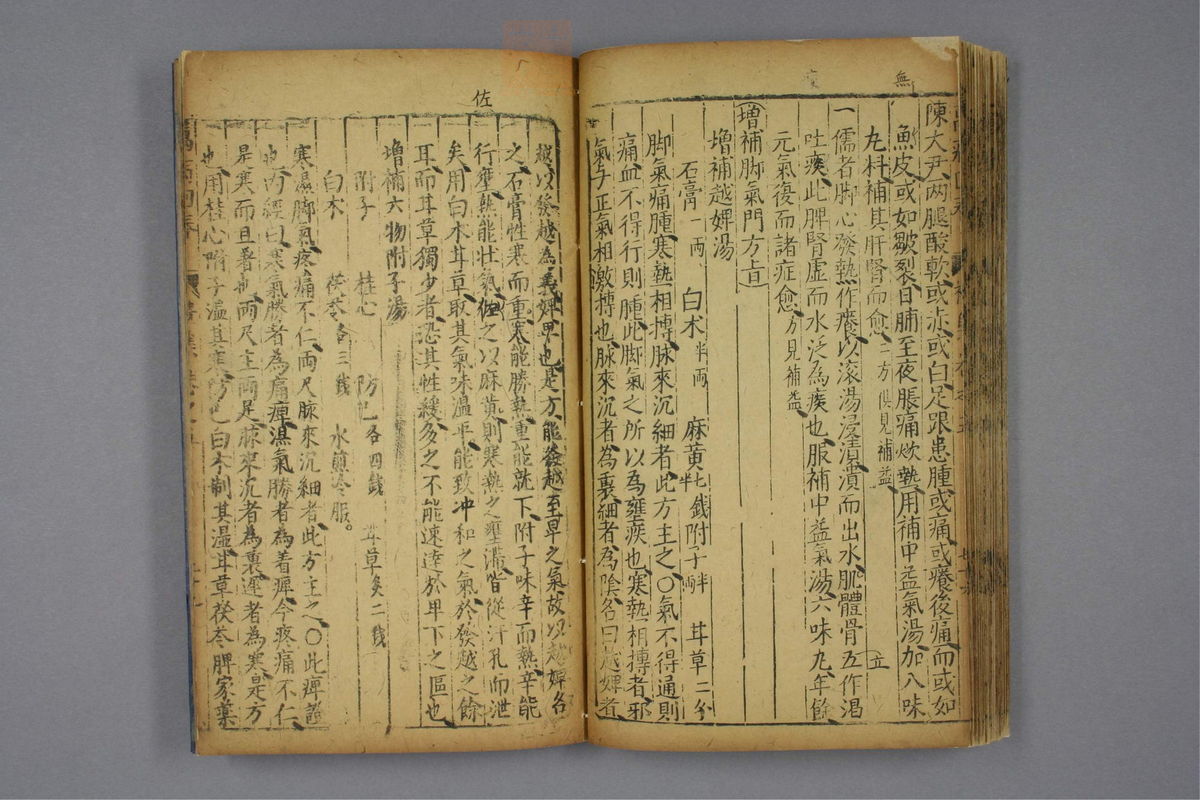 無
陳大尹両腿酸軟或赤或白足跟患腫或痛或癢後痛而或如
魚皮或如皺裂日脯至夜脹痛焮熱用補中益氣湯加八味
丸料補其肝腎而愈二方俱見補益
一儒者脚心發熱作癢以滚湯浸漬潰而出水肌體骨立作渴
吐痰此脾腎虚而水泛為痰也服補中益氣湯六味丸年餘
元氣復而諸症愈方見補益
増補脚氣門方
増補越婢湯
石膏一両 白术半両 麻黄七錢半 附子半両 甘草二分
脚氣痛腫寒熱相搏脉來沉細者此方主之〇氣不得通則
痛血不得行則腫此脚氣之所以為壅疾也寒熱相搏者邪
氣与正氣相激搏也脉來沉者為裏細者為陰名曰越婢者
佐
越以發越為義婢卑也是方能發越至卑之氣故以越婢名
之石膏性寒而重寒能勝熱重能就下附子味辛而熱辛能
行壅熱能壮氣佐之以麻黄則寒熱之壅滞皆從汗孔而泄
矣用白术甘草取其氣味温平能致冲和之氣於發越之餘
耳而甘草獨少者恐其性緩多之不能速達於卑下之區也
増補六物附子湯
附子 桂心 防已各四錢 甘草炙二錢
白术 茯苓各三錢 水煎冷服。
寒濕脚氣疼痛不仁両尺脉來沉細者此方主之〇此痺證
也内經曰寒氣勝者為痛痺濕氣勝者為着痺今疼痛不仁
是寒而且着也両尺主両足脉來沉者為裏遲者為寒是方
也用桂心附子温其寒防已白术制其濕甘草茯苓脾家藥